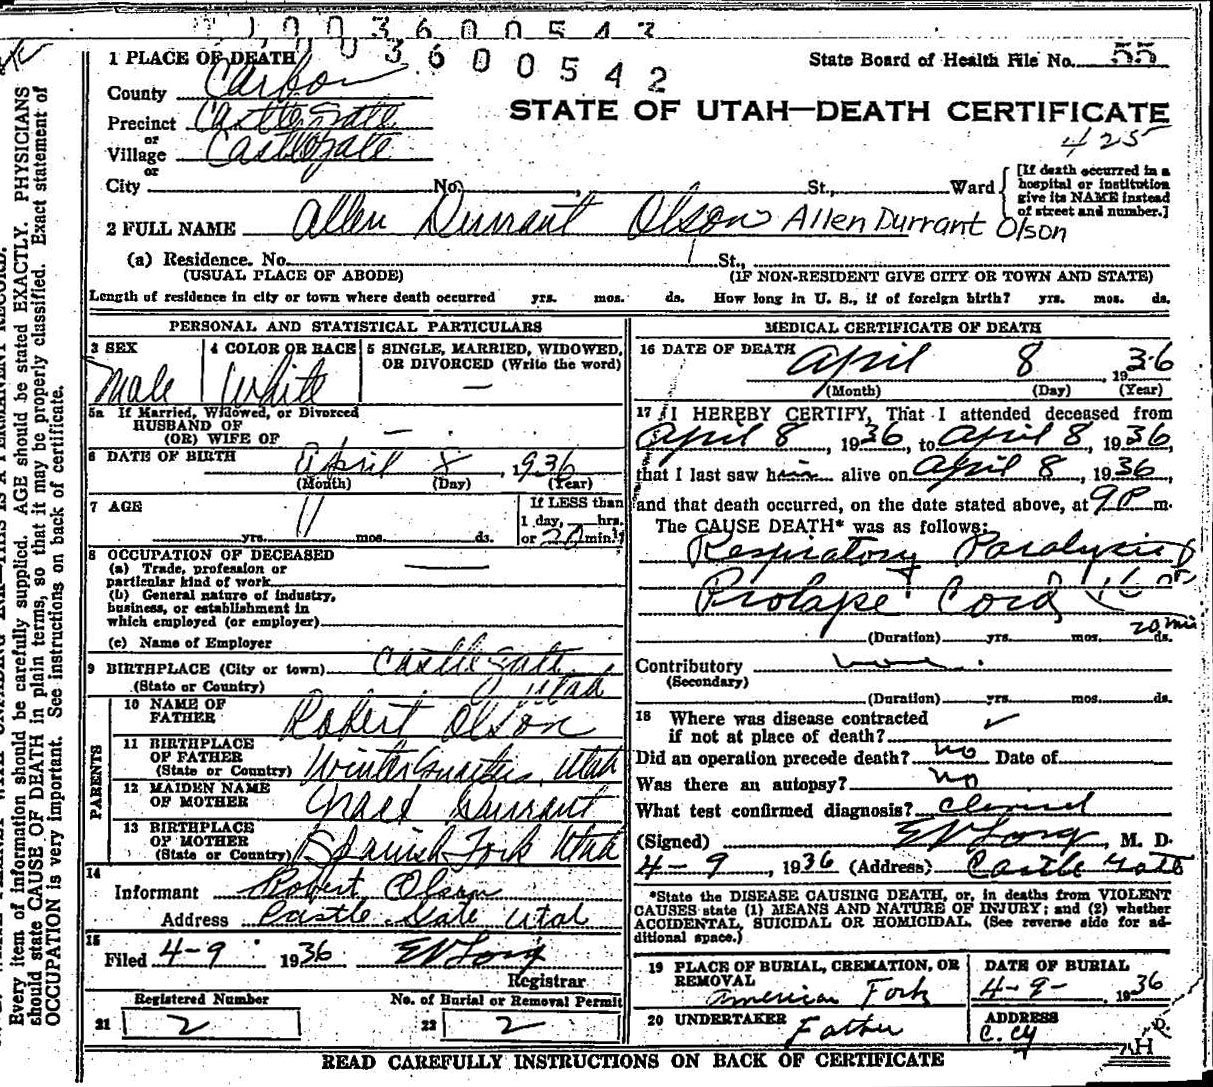 1003600543
1003600542
1 PLACE OF DEATH
State Board of Health File No. 55
County Carbon
STATE OF UTAH—DEATH CERTIFICATE
Precinct Castle Gate
425
or
Village Castlegate
or
City No. , St., Ward
[If death occurred in a
hospital or institution
give its NAME instead
of street and number.]
2 FULL NAME Allen Durrant Olson Allen Durrant Olson
(a) Residence. No. St.,
(USUAL PLACE OF ABODE) (IF NON-RESIDENT GIVE CITY OR TOWN AND STATE)
Length of residence in city or town where death occurred yrs. mos. ds. How long in U. S., if of foreign birth? yrs. mos. ds.
PERSONAL AND STATISTICAL PARTICULARS
3 SEX
Male
4 COLOR OR RACE
White
5 SINGLE, MARRIED, WIDOWED,
OR DIVORCED (Write the word)
—
5a If Married, Widowed, or Divorced
HUSBAND OF
(OR) WIFE OF —
6 DATE OF BIRTH April 8, 1936
(Month) (Day) (Year)
7 AGE
yrs. mos. ds.
If LESS than
1 day, hrs.
or 20 min.?
8 OCCUPATION OF DECEASED
(a) Trade, profession or
particular kind of work
(b) General nature of industry,
business, or establishment in
which employed (or employer)
(c) Name of Employer
9 BIRTHPLACE (City or town) Castle Gate
(State or Country) Utah
PARENTS
10 NAME OF
FATHER Robert Olson
11 BIRTHPLACE
OF FATHER
(State or Country) Winter Quarters, Utah
12 MAIDEN NAME
OF MOTHER Grace Durrant
13 BIRTHPLACE
OF MOTHER
(State or Country) Spanish Fork Utah
14
Informant Robert Olson
Address Castle Gate Utah
15
Filed 4-9 1936 EV Long
Registrar
Registered Number
21 2
No. of Burial or Removal Permit
22 2
MEDICAL CERTIFICATE OF DEATH
16 DATE OF DEATH April 8, 1936
(Month) (Day) (Year)
17 I HEREBY CERTIFY, That I attended deceased from
April 8, 1936, to April 8, 1936
that I last saw him alive on April 8, 1936,
and that death occurred, on the date stated above, at 9P m.
The CAUSE DEATH* was as follows:
Respiratory Paralysis
Prolapse Cord
20 min
(Duration) yrs. mos. ds.
Contributory none.
(Secondary)
(Duration) yrs. mos. ds.
18 Where was disease contracted
if not at place of death? ✓
Did an operation precede death? no Date of
Was there an autopsy? no
What test confirmed diagnosis? clinical
(Signed) EV Long, M. D.
4-9, 1936 (Address) Castle Gate
*State the DISEASE CAUSING DEATH, or, in deaths from VIOLENT
CAUSES state (1) MEANS AND NATURE OF INJURY; and (2) whether
ACCIDENTAL, SUICIDAL OR HOMICIDAL. (See reverse side for ad-
ditional space.)
19 PLACE OF BURIAL, CREMATION, OR
REMOVAL
American Fork
DATE OF BURIAL
4-9-, 1936
20 UNDERTAKER
Father
ADDRESS
C. Cy
H
READ CAREFULLY INSTRUCTIONS ON BACK OF CERTIFICATE
Every item of information should be carefully supplied. AGE should be stated EXACTLY. PHYSICIANS
should state CAUSE OF DEATH in plain terms, so that it may be properly classified. Exact statement of
OCCUPATION is very important. See instructions on back of certificate.